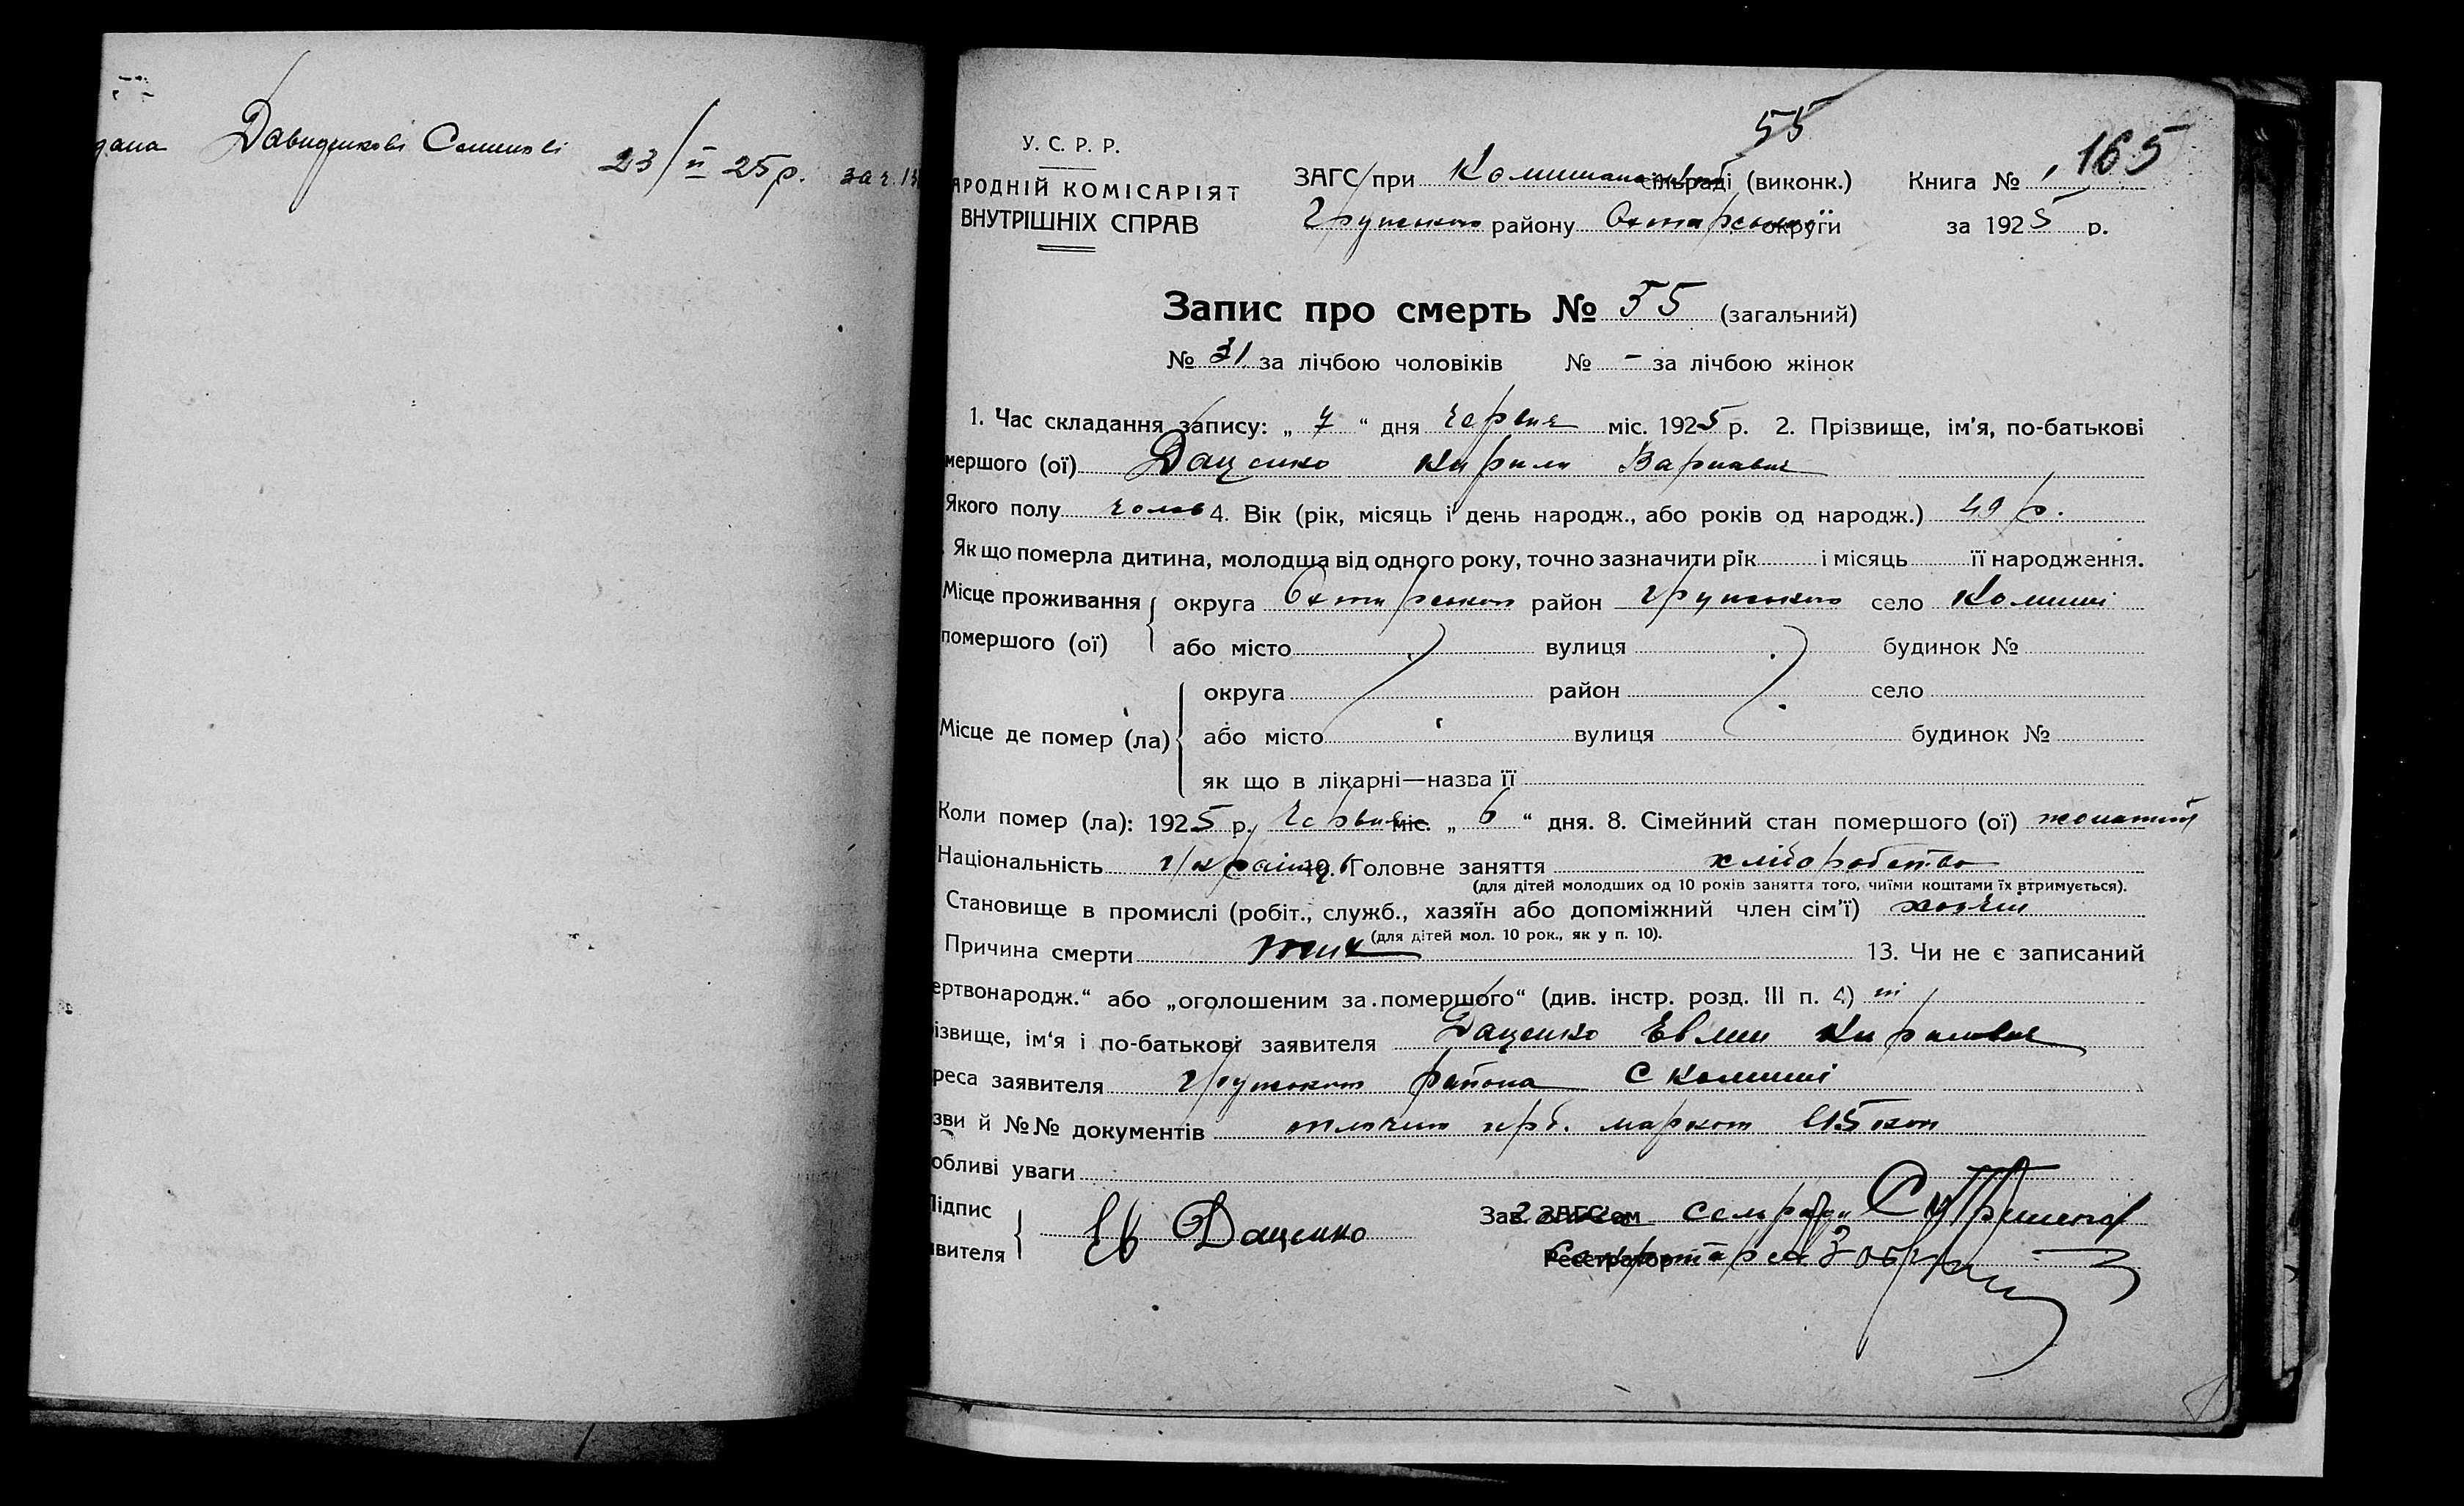 дана Давиденкові Семенові 23/II 25р. за ч.
55
165
У. С. Р. Р.
АРОДНІЙ КОМІСАРІЯТ
ВНУТРІШНІХ СПРАВ
ЗАГС при Комишанській сільраді (виконк.) Книга № 1
Грунського району Охтирської округи за 1925 р.
Запис про смерть № 55 (загальний)
№ 31 за лічбою чоловіків № - за лічбою жінок
1. Час складання запису: „ 7 “ дня червня міс. 1925 р. 2. Прізвище, ім'я, по-батькові
мершого (ої) Даценко Кирило Варнавич
Якого полу чолов 4. Вік (рік, місяць і день народж., або років од народж.) 49 р.
Як що померла дитина, молодша від одного року, точно зазначити рік і місяць її народження.
Місце проживання округа Охтирського район Грунського село Комиші
помершого (ої) або місто вулиця будинок №
округа район село
Місце де помер (ла) або місто вулиця будинок №
як що в лікарні—назва її
Коли помер (ла): 1925 р. Червня міс. „ 6 “ дня. 8. Сімейний стан помершого (ої) жонатий
Національність українець 10. Головне заняття хліборобство
(для дітей молодших од 10 років заняття того, чиїми коштами їх втримується).
Становище в промислі (робіт., служб., хазяїн або допоміжний член сім'ї) хазяїн
(для дітей мол. 10 рок., як у п. 10).
Причина смерти 13. Чи не є записаний
ертвонародж.“ або „оголошеним за помершого“ (див. інстр. розд. III п. 4) ні
ізвище, ім'я і по-батькові заявителя Даценко Кирилович
реса заявителя Грунського района С Комиші
зви й №№ документів герб. маркою 15 коп
обливі уваги
Підпис
явителя Ев Даценко
Зав. ЗАГС'ом сельради
Реєстратор